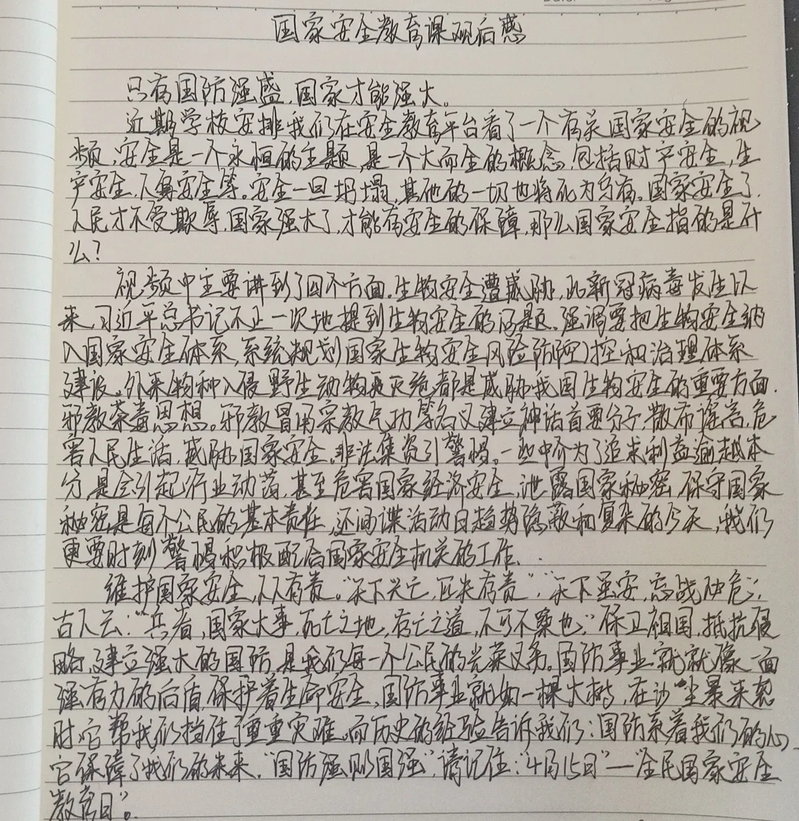 国家安全教育课观后感
只有国防强盛,国家才能强大。
近期学校安排我们在安全教育平台看了一个有关国家安全的视
频,安全是一个永恒的主题,是一个大而全的概念,包括财产安全,生
产安全,人身安全等。安全一旦坍塌,其他的一切也将化为乌有。国家安全了,
人民才不受欺辱,国家强大了,才能有安全的保障,那么国家安全指的是什
么?
视频中主要讲到了四个方面。生物安全遭威胁,从新冠病毒发生以
来,习近平总书记不止一次地提到生物安全的问题。强调要把生物安全纳
入国家安全体系,系统规划国家生物安全风险防控和治理体系
建设。外来物种入侵野生动物灭绝都是威胁我国生物安全的重要方面。
邪教荼毒思想。邪教冒用宗教气功等名义建立神话首要分子,散布谣言,危
害人民生活,威胁国家安全。非法集资引警惕。一些中介为了追求利益逾越本
分是会引起行业动荡,甚至危害国家经济安全。泄露国家秘密,保守国家
秘密是每个公民的基本责任,还涵谍活动日趋隐蔽和复杂的今天,我们
更要时刻警惕积极配合国家安全机关的工作。
维护国家安全,人人有责。"天下兴亡,匹夫有责","天下虽安,忘战必危",
古人云:"兵者,国家大事,死亡之地,存亡之道,不可不察也。"保卫祖国,抵抗侵
略,建立强大的国防,是我们每一个公民的光荣义务。国防事业就就像一面
强有力的后盾,保护着生命安全,国防事业就如一棵大树,在沙尘暴来袭
时它帮我们挡住了重重灾难。而历史的经验告诉我们:国防系着我们的心
它保障了我们的未来,"国防强则国强",请记住:"4月15日"—"全民国家安全
教育日"。